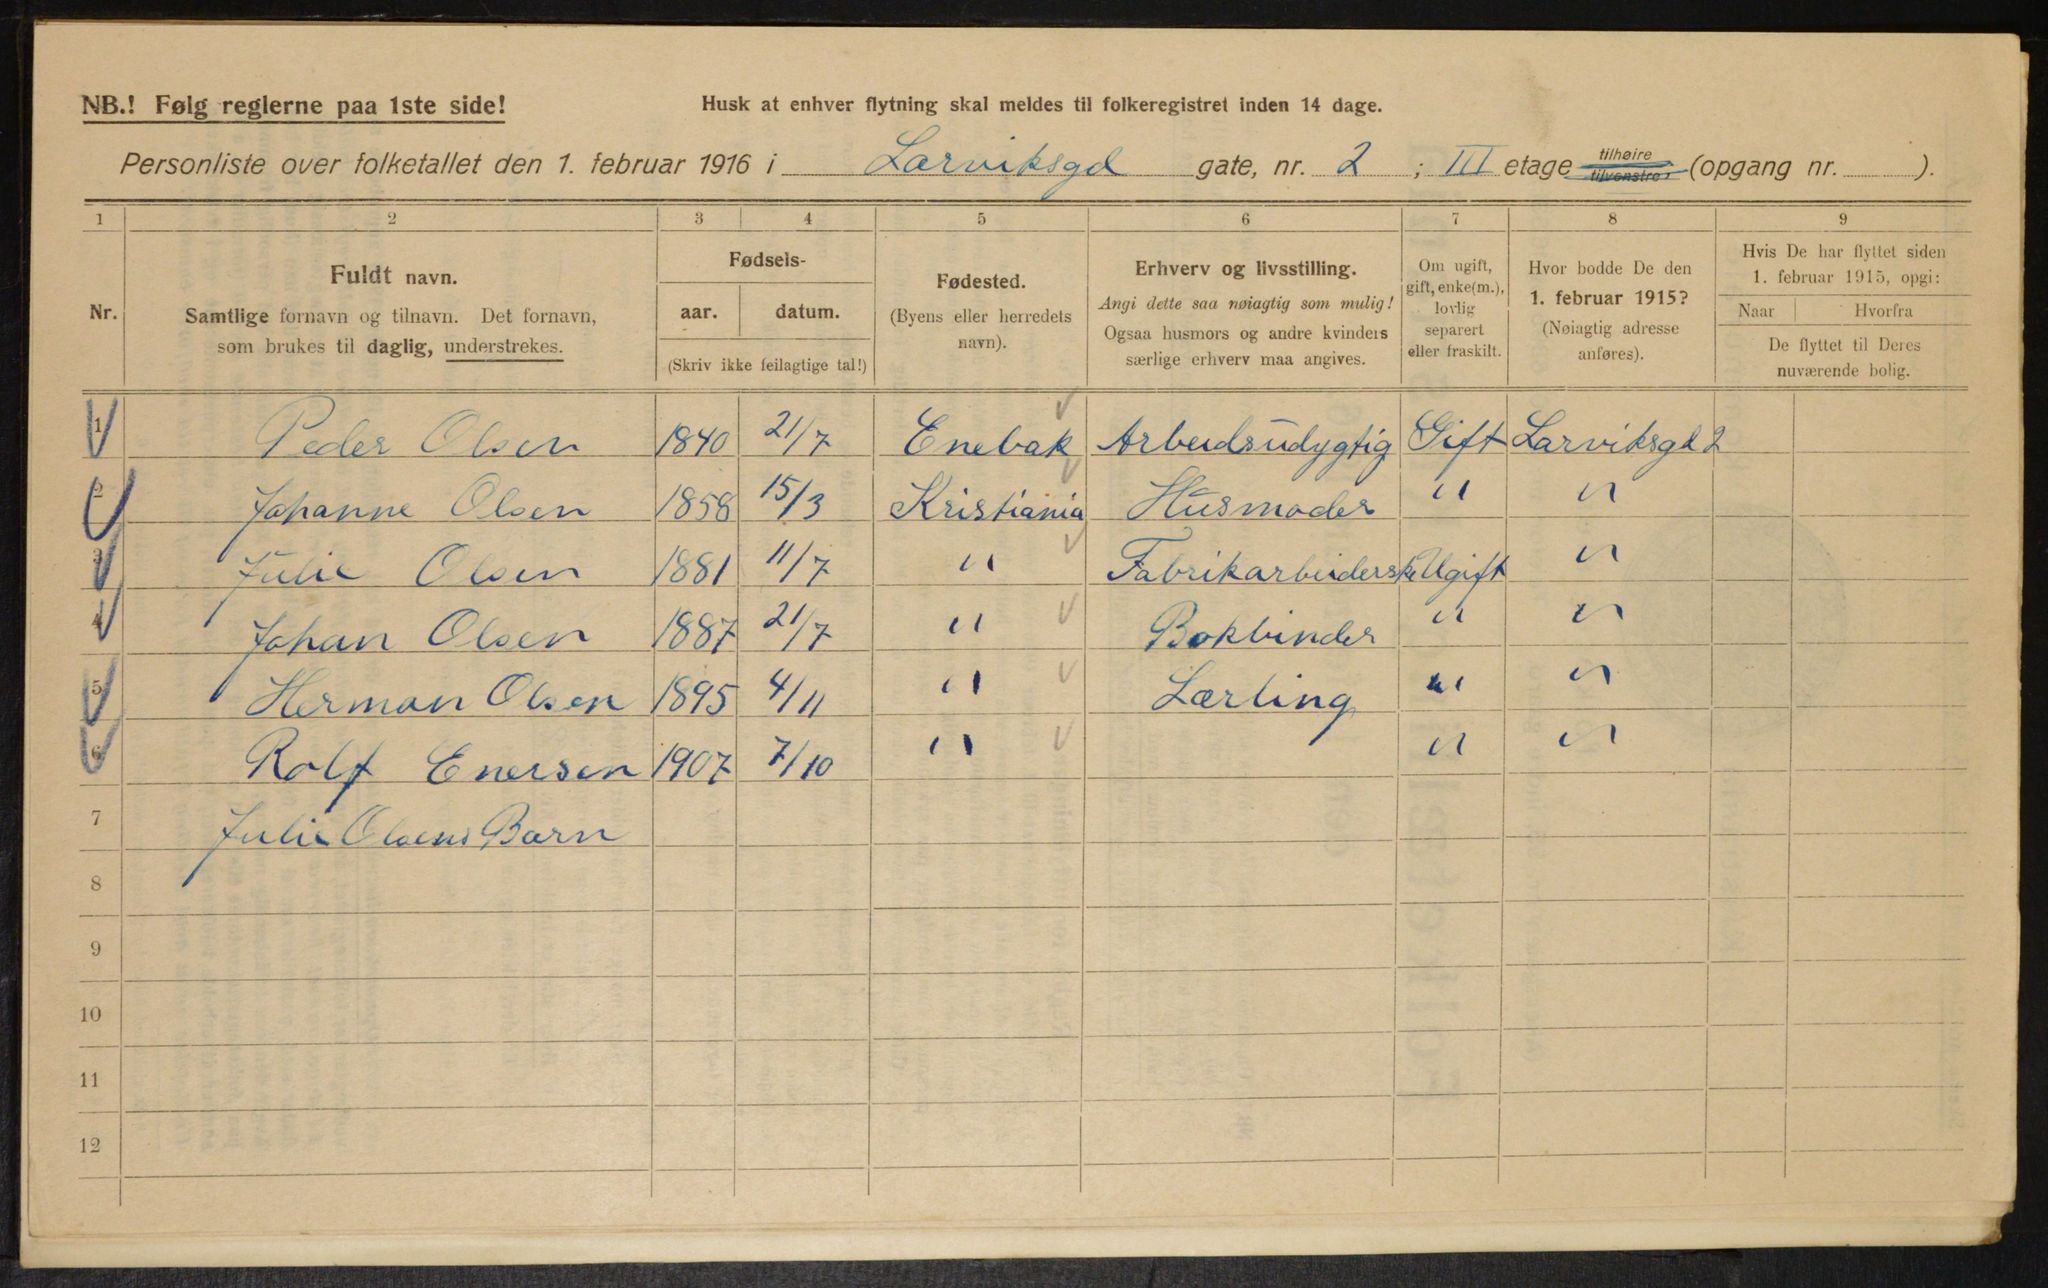 NB.! Følg reglerne paa 1ste side!
Husk at enhver flytning skal meldes til folkeregistret inden 14 dage.
Personliste over folketallet den 1. februar 1916 i Larviksgd gate, nr. 2 ; III etage tilhøire tilvenstre, (opgang nr. ).
1 2 3 4 5 6 7 8 9
Nr.
Fuldt navn.
Samtlige fornavn og tilnavn. Det fornavn,
som brukes til daglig, understrekes.
Fødsels-
aar. datum.
(Skriv ikke feilagtige tal!)
Fødested.
(Byens eller herredets
navn).
Erhverv og livsstilling.
Angi dette saa nøiagtig som mulig!
Ogsaa husmors og andre kvinders
særlige erhverv maa angives.
Om ugift,
gift, enke(m.),
lovlig
separert
eller fraskilt.
Hvor bodde De den
1. februar 1915?
(Nøiagtig adresse
anføres).
Hvis De har flyttet siden
1. februar 1915, opgi:
Naar Hvorfra
De flyttet til Deres
nuværende bolig.
1 Peder Olsen 1840 21/7 Enebak Arbeidsudygtig Gift Larviksgd 2
2 Johanne Olsen 1858 15/3 Kristiania Husmoder " "
3 Julie Olsen 1881 11/7 " Fabrikarbeiderske Ugift "
4 Johan Olsen 1887 21/7 " Bokbinder " "
5 Herman Olsen 1895 4/11 " Lærling " "
6 Rolf Enersen 1907 7/10 " " "
7 Julie Olsens Barn
8
9
10
11
12